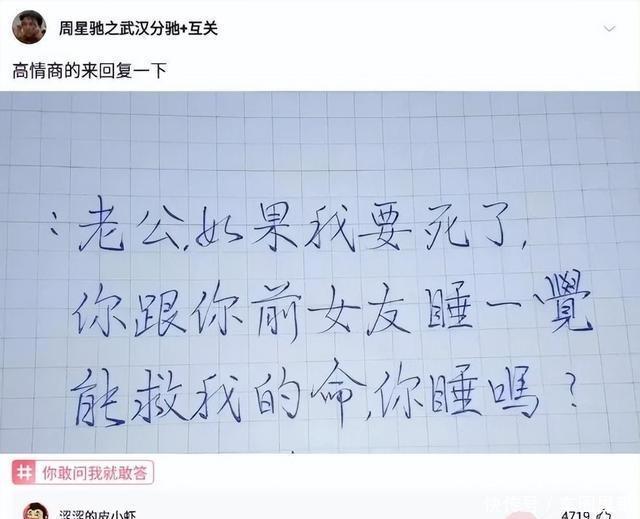 周星驰之武汉分驰+互关
高情商的来回复一下
：老公，如果我要死了，
你跟你前女友睡一覺
能救我的命，你睡嗎？
你敢问我就敢答
涩涩的皮小虾
4719